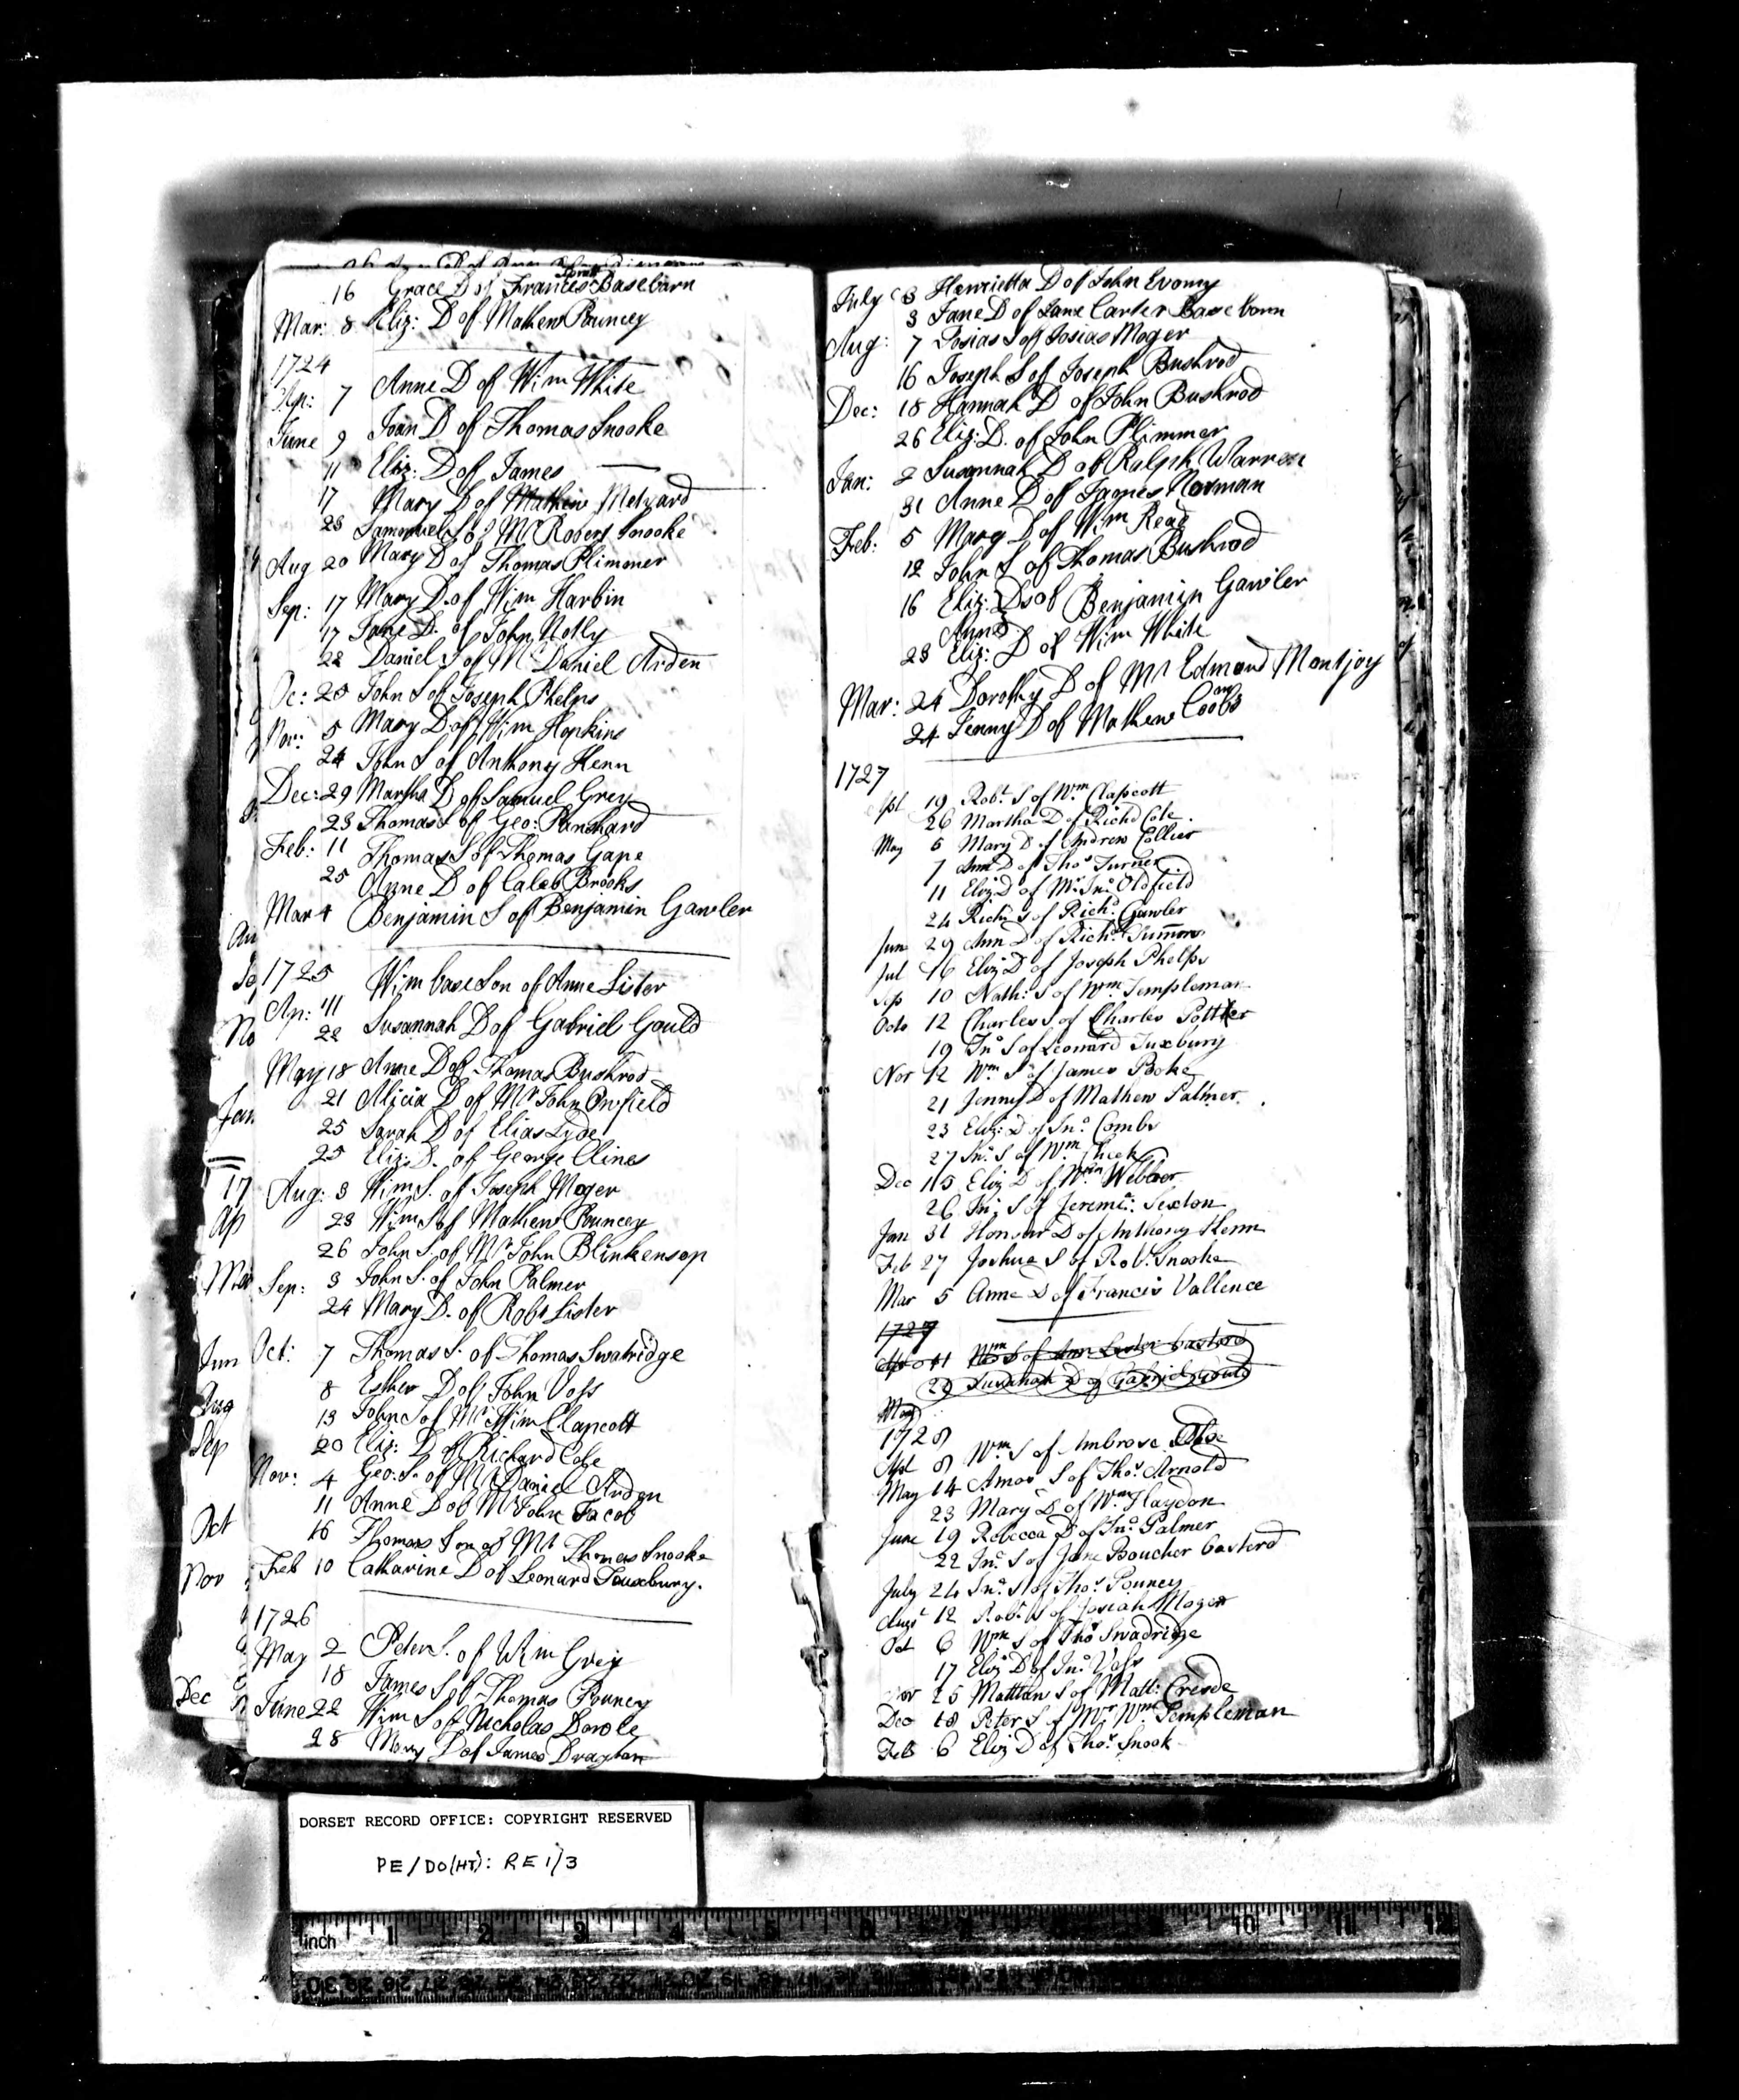 16 Grace D of Frances Basebarn
Mar: 8 Eliz: D of Mathew Pouncey
1724
Ap: 7 Anne D of Wim White
June 9 Joan D of Thomas Snooke
11 Eliz: D of James —
17 Mary D of Mathew Melvard
23 Sammuel S of Mr Robert Snooke
Aug 20 Mary D of Thomas Plimmer
Sep: 17 Mary D. of Wim Harbin
17 Jane D. of John Notly
22 Daniel S of Mr Daniel Arden
Oc: 20 John S of Joseph Phelps
Nov: 5 Mary D of Wim Hopkins
24 John S of Anthony Henn
Dec: 29 Martha D of Samuel Grey
23 Thomas S of Geo: Panchard
Feb: 11 Thomas S of Thomas Gape
25 Anne D of Caleb Brooks
Mar 4 Benjamin S of Benjamin Gawler
1725 Wim base Son of Anne Lister
Ap: 11
22 Susannah D of Gabriel Gould
May 18 Anne D of Thomas Bushrod
21 Alicia D of Mr John Owfield
25 Sarah D of Elias Lyde
25 Eliz: D. of George Clines
Aug: 3 Wim S. of Joseph Moger
23 Wim S of Mathew Pouncey
26 John S. of Mr John Blinkensop
Sep: 3 John S. of John Palmer
24 Mary D. of Robt Lister
Oct: 7 Thomas S. of Thomas Swatridge
8 Esther D of John Voss
13 John S of Mr Wim Clapcott
20 Eliz: D of Richard Cole
Nov: 4 Geo: S. of Mr Daniel Arden
11 Anne D of Mr John Jacob
16 Thomas Son of Mr Thomas Snooke
Feb 10 Catharine D of Leonard Teuxbury.
1726
May 2 Peter S. of Wim Grey
18 James S of Thomas Pouncy
June 22 Wim S of Nicholas Bowle
28 Mary D of James Drayton
July 3 Henrietta D of John Evomy
3 Jane D of Jane Carter Base born
Aug: 7 Josias S of Josias Moger
16 Joseph S of Joseph Bushrod
Dec: 18 Hannah D of John Bushrod
26 Eliz: D. of John Plimmer
Jan: 2 Susannah D of Ralph Warren
31 Anne D of James Norman
Feb: 5 Mary D of Wim Read
12 John S of Thomas Bushrod
16 Eliz: Ds of Benjamin Gawler
Ann
23 Eliz: D of Wim White
Mar: 24 Dorothy D of Mr Edmond Montjoy
24 Jenny D of Mathew Coobs
1727
Apl 19 Robt. S of Wm Clapcott
26 Martha D of Richd Cole.
May 5 Mary D of Andrew Collier
7 Ann D of Thos Turner
11 Eliz D of Mr. Jno. Oldfield
24 Richd S of Richd. Gawler
Jun 29 Ann D of Richd. Summers
Jul 16 Eliz D of Joseph Phelps
Sep 10 Nath: S of Wm Templeman
Octo 12 Charles S of Charles Pottter
19 Jno S of Leonard Tuxbury
Nov 12 Wm S of James Cooke
21 Jenny D of Mathew Palmer.
23 Eliz: D of Jno. Combs
27 Jno. S of Wm Cheek
Dec 15 Eliz D of Wm Webber
26 Jn; S of Jeremi: Sexton
Jan 31 Honour D of Anthony Henn
Feb 27 Joshua S of Robt. Snooke
Mar 5 Anne D of Francis Vallence
1727
Apl 11 Wm S of Ann Lester bastard
29 Susanah D of Gabriel Gould
May
1728
Apl 8 Wm S of Ambrose
May 14 Amos S of Thos. Arnold
23 Mary D of Wm Haydon
June 19 Rebecca D of Jno. Palmer
22 Jno. S of Jane Boucher basterd
July 24 Jno. S of Thos. Pouncy
Augt 12 Robt. S of Josiah Moger
Oct 6 Wm S of Thos Swadridge
17 Eliz D of Jno. Voss
Nov 25 Matthw S of Matt: Creode
Dec 18 Peter S of Mr. Wm Templeman
Feb 6 Eliz D of Thos. Snook
An
Se
No
Jan
17
Ap
Mar
Jun
Aug
Sep
Oct
Nov
Dec
DORSET RECORD OFFICE: COPYRIGHT RESERVED
PE/DO(HT): RE 1/3
inch 1 2 3 4 5 6 7 8 9 10 11 12